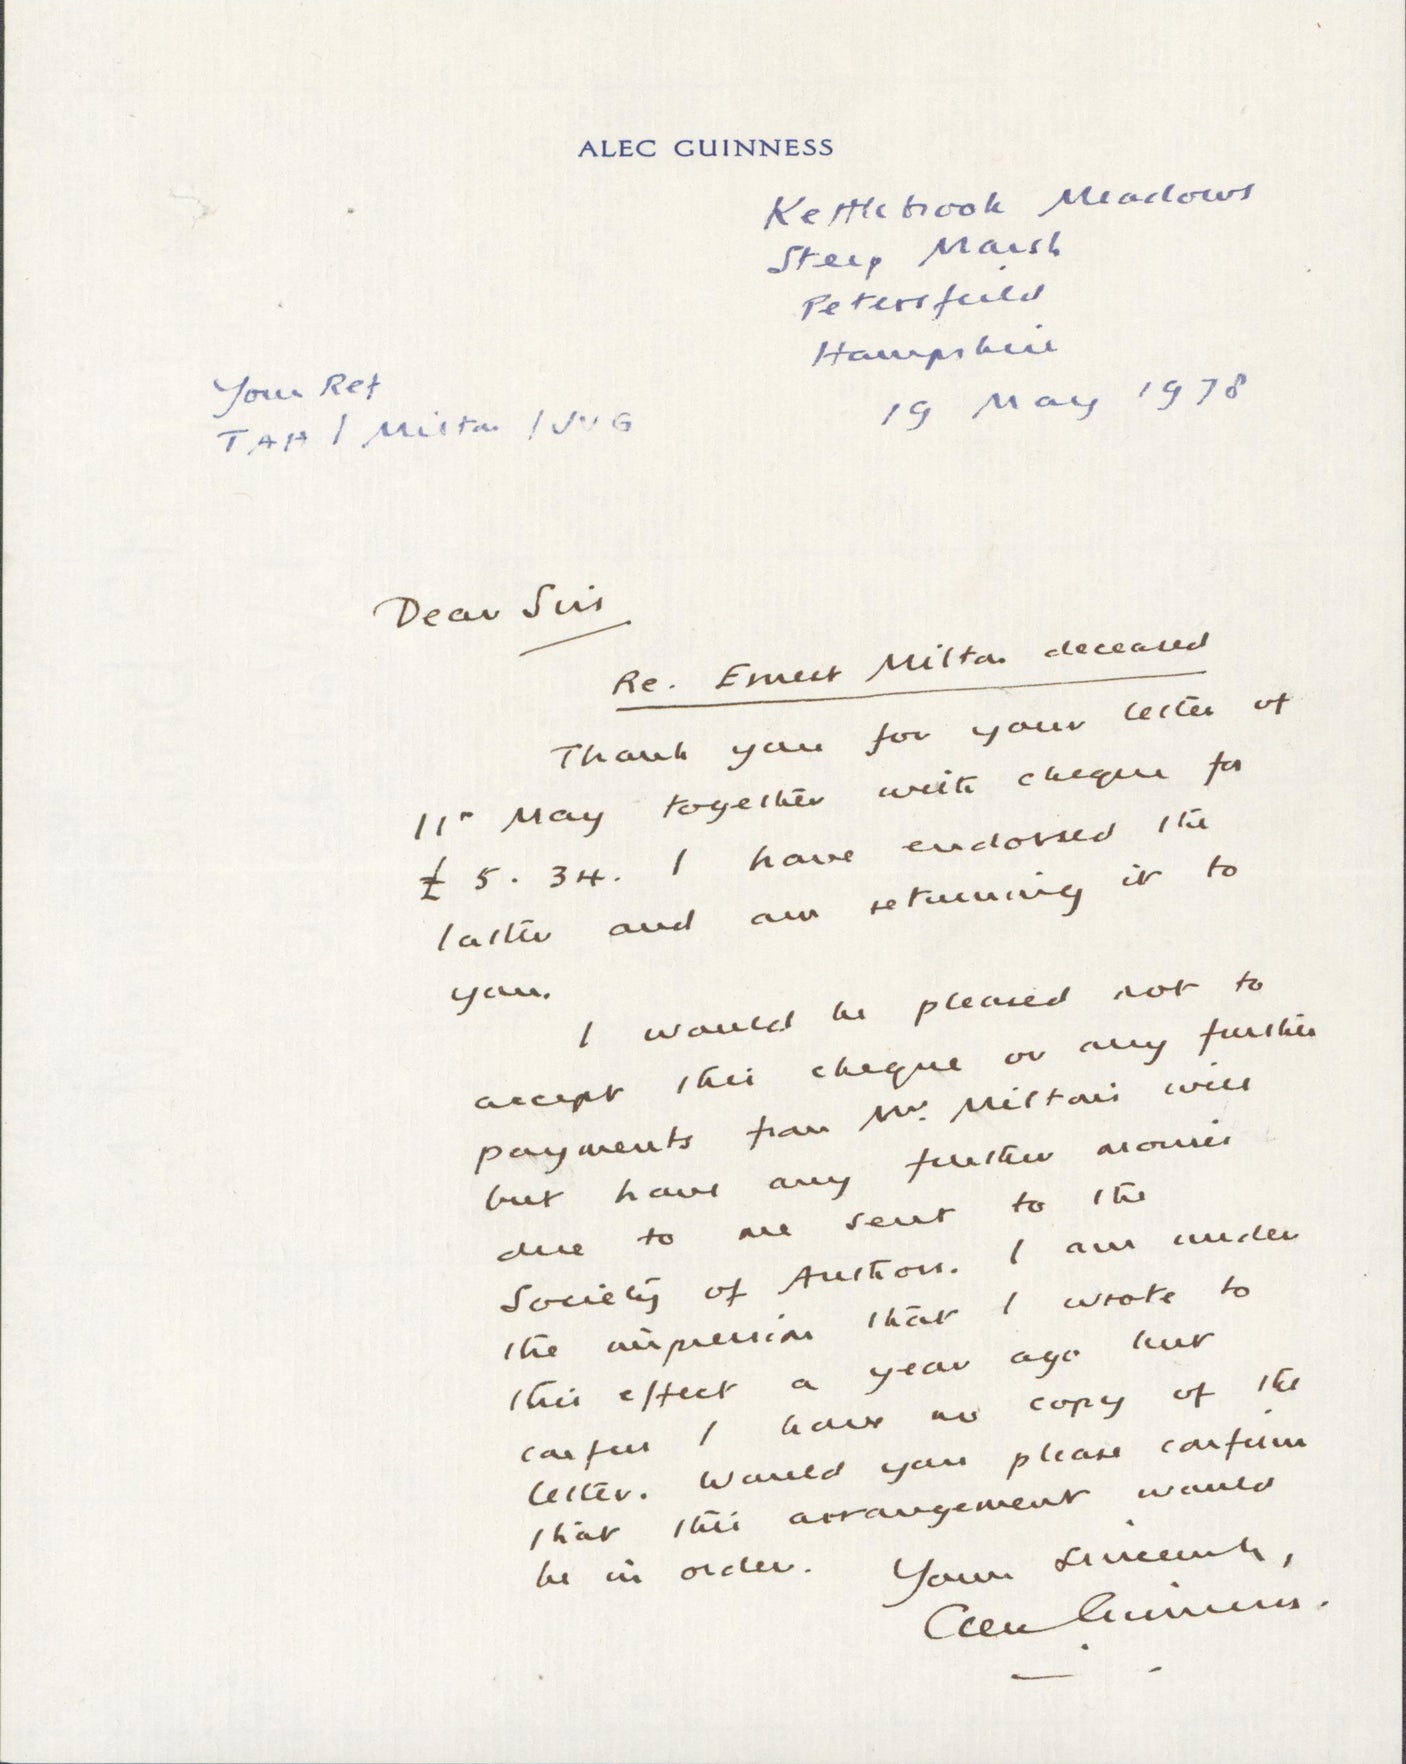 ALEC GUINNESS
Kettlebrook Meadows
Steep Marsh
Petersfield
Hampshire
19 May 1978
Your Ref
TAH / Milton / JVG
Dear Sirs
Re. Ernest Milton deceased
Thank you for your letter of
11th May together with cheque for
£5.34. I have endorsed the
latter and am returning it to
you.
I would be pleased not to
accept this cheque or any further
payments from Mr. Milton's will
but have any further monies
due to me sent to the
Society of Authors. I am under
the impression that I wrote to
this effect a year ago but
confess I have no copy of the
letter. Would you please confirm
that this arrangement would
be in order.
Yours sincerely,
Alec Guinness.